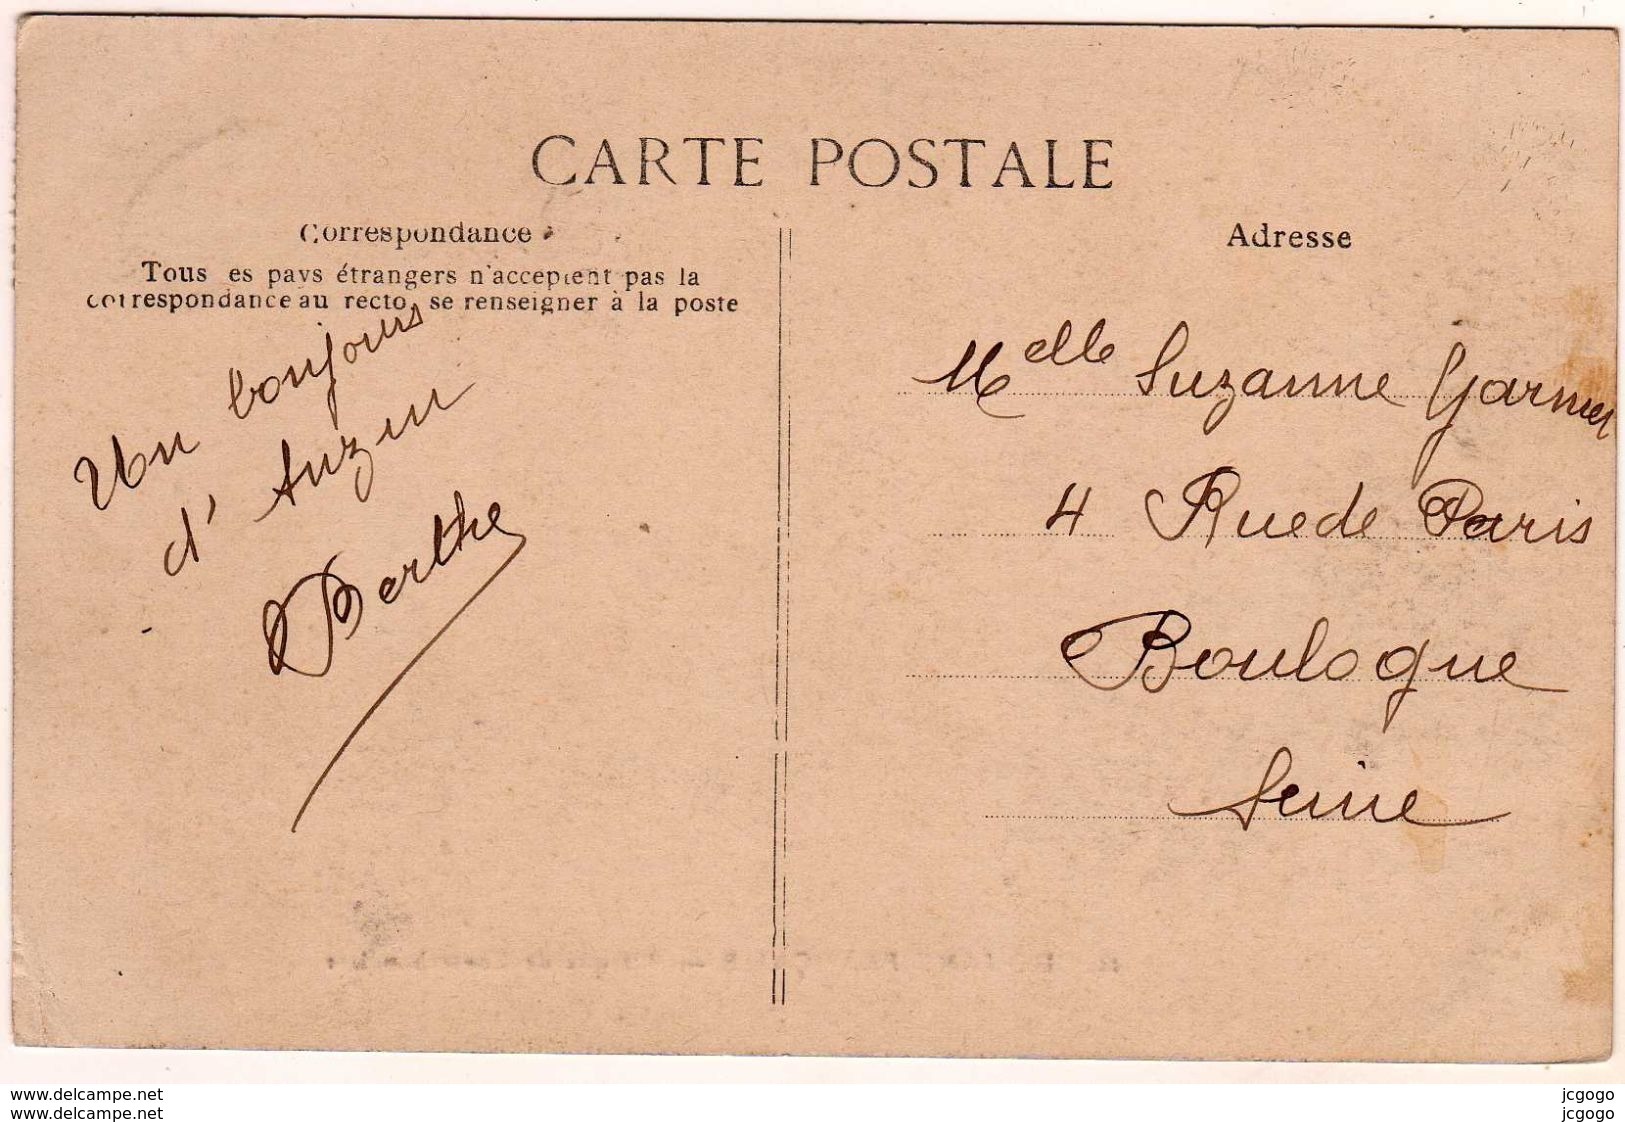 CARTE POSTALE
Correspondance
Tous es pays étrangers n'acceptent pas la
correspondance au recto, se renseigner à la poste
Un bonjour
d'Auzin
Berthe
Adresse
Melle Suzanne Garnier
4 Rue de Paris
Boulogne
Seine
www.delcampe.net
www.delcampe.net
jcgogo
jcgogo